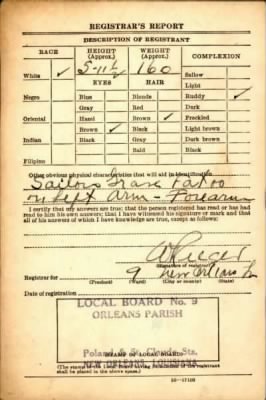 REGISTRAR'S REPORT
DESCRIPTION OF REGISTRANT
RACE HEIGHT (Approx.) WEIGHT (Approx.) COMPLEXION
White ✓ 5-11½ 160 Sallow
EYES HAIR Light
Negro Blue Blonde Ruddy ✓
Gray Red Dark
Oriental Hazel Brown Freckled
Brown ✓ Black ✓ Light brown
Indian Black Gray Dark brown
Bald Black
Filipino
Other obvious physical characteristics that will aid in identification
Sailors Grave Tatoo
on Left Arm - Forearm
I certify that my answers are true; that the person registered has read or has had
read to him his own answers; that I have witnessed his signature or mark and that
all of his answers of which I have knowledge are true, except as follows:
(Signature of registrar)
Registrar for 9 New Orleans La
(Precinct) (Ward) (City or county) (State)
Date of registration
LOCAL BOARD No. 9
ORLEANS PARISH
Poland & St. Claude Sts.
NEW ORLEANS, LOUISIANA
(STAMP OF LOCAL BOARD)
(The stamp of the Local Board having jurisdiction of the registrant
shall be placed in the above space.)